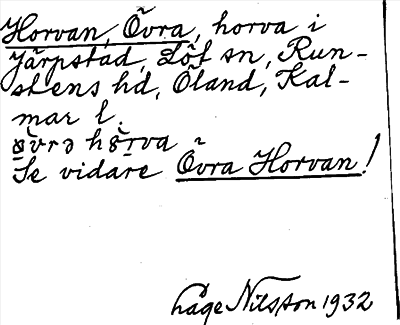 Horvan, Övra, horva i
Järpstad, Löt sn, Run-
stens hd, Öland, Kal-
mar l.
Se vidare Övra Horvan!
Nilsson 1932